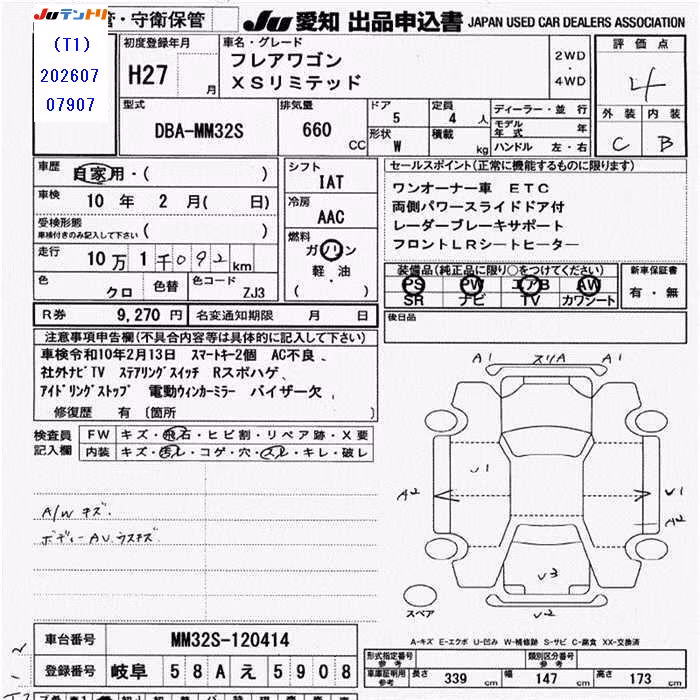 Juテントリ
管・守衛保管
(T1)
202607
07907
JU 愛知 出品申込書 JAPAN USED CAR DEALERS ASSOCIATION
初度登録年月
H27 月
車名・グレード
フレアワゴン
XSリミテッド
2WD
・
4WD
評価点
4
外装 内装
C B
型式
DBA-MM32S
排気量
660 CC
ドア
5
定員
4 人
形状
W
積載
kg
ディーラー・並行
モデル年式 年
ハンドル 左・右
車歴
自家用・( )
車検
10 年 2 月( 日)
受検形態
車検付きのみ記入して下さい ( )
走行
10万 1千092 km
色
クロ
色替
色コード
ZJ3
シフト
IAT
冷房
AAC
燃料
ガソリン
軽・油
( )
セールスポイント(正常に機能するものに限ります)
ワンオーナー車 ETC
両側パワースライドドア付
レーダーブレーキサポート
フロントLRシートヒーター
装備品(純正品に限り○をつけてください)
PS PW エアB AW
SR ナビ TV カワシート
新車保証書
有・無
R券 9,270 円 名変通知期限 月 日
後日品
注意事項申告欄(不具合内容等は具体的に記入して下さい)
車検令和10年2月13日 スマートキー2個 AC不良、
社外ナビTV ステアリングスイッチ Rスポハゲ、
アイドリングストップ 電動ウィンカーミラー バイザー欠
修復歴 有 〔箇所
検査員
記入欄
FW キズ・飛石・ヒビ割・リペア跡・X要
内装 キズ・汚レ・コゲ・穴・スレ・キレ・破レ
A/W キズ.
ボディーAU.ラスキズ
A1 スリA A1
U1
A2 U1
A2
U3
U2
スペア
A-キズ E-エクボ U-凹み W-補修跡 S-サビ C-腐食 XX-交換済
車台番号 MM32S-120414
登録番号 岐阜 58Aえ5908
形式指定番号
参考
類別区分番号
参考
車庫証明用
参考
長さ 339 cm 幅 147 cm 高さ 173 cm